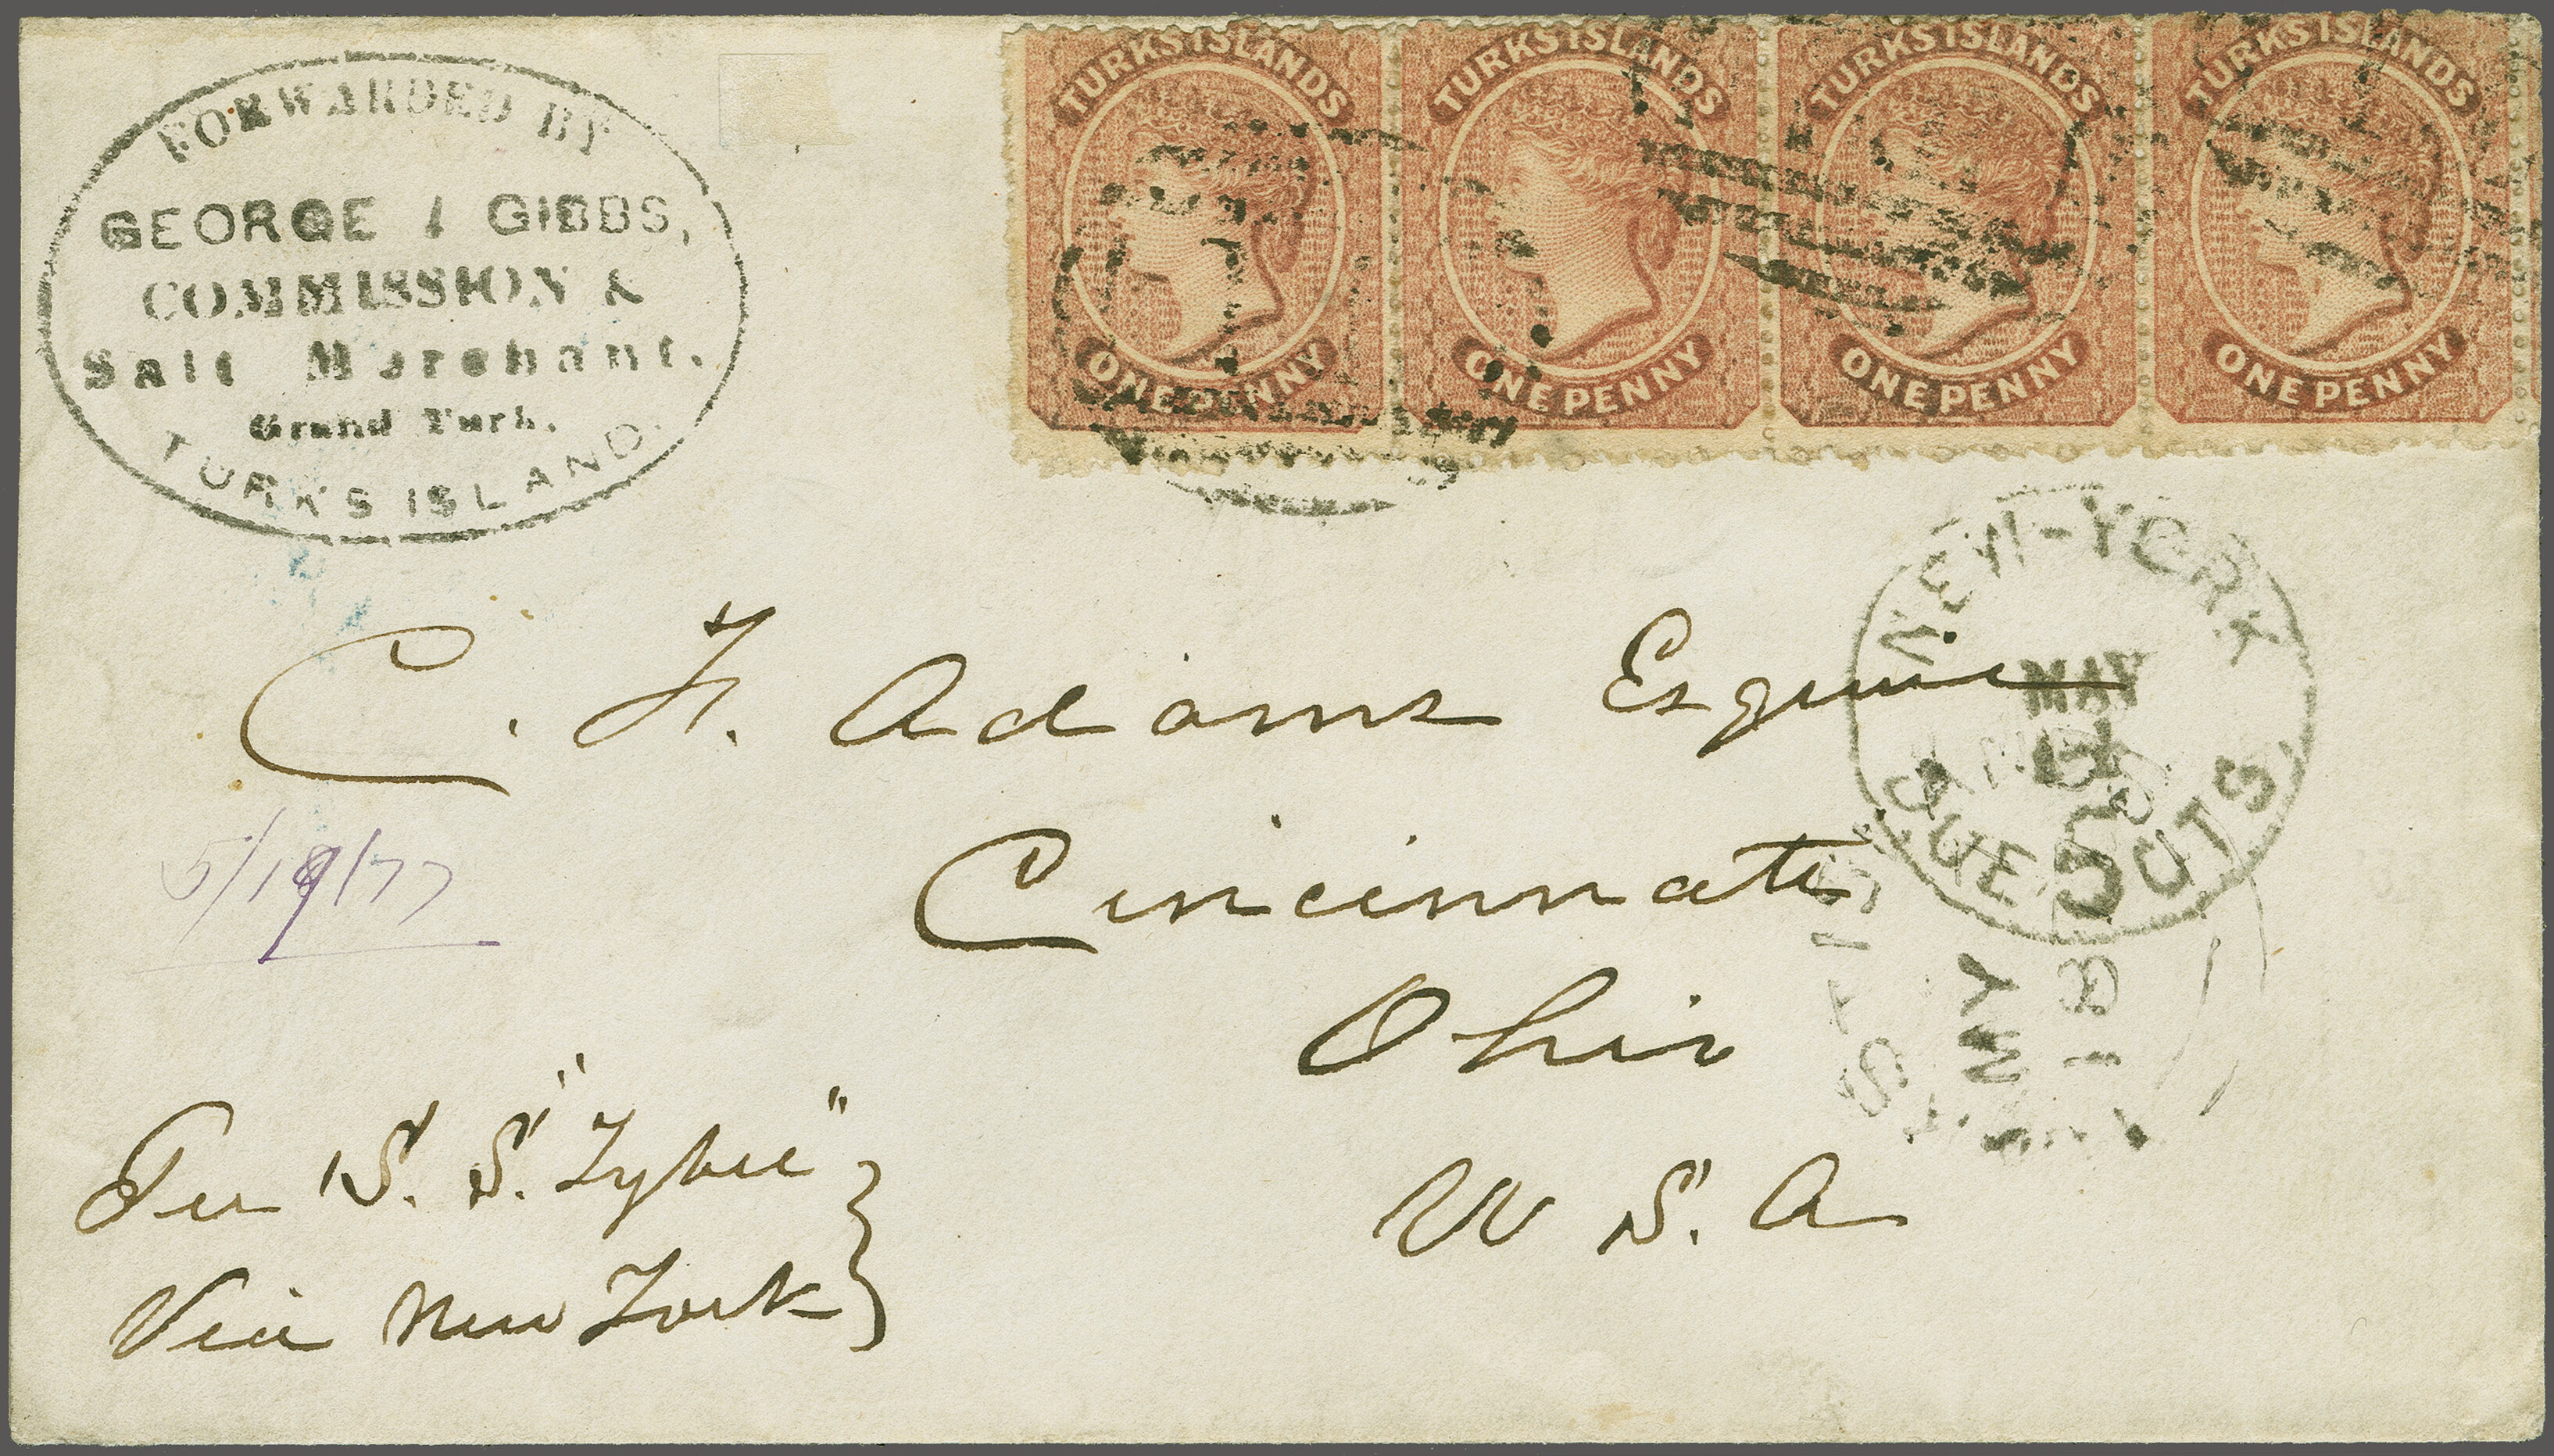 FORWARDED BY
GEORGE J GIBBS,
COMMISSION &
Salt Merchant.
Grand Turk.
TURKS ISLAND.
TURKS ISLANDS
ONE PENNY
TURKS ISLANDS
ONE PENNY
TURKS ISLANDS
ONE PENNY
TURKS ISLANDS
ONE PENNY
NEW-YORK
MAY
DUE CTS
5
MY
18
C. F. Adams Esquire
Cincinnati
Ohio
U S. A
5/19/77
Per S. S. "Tybee"
Via New York